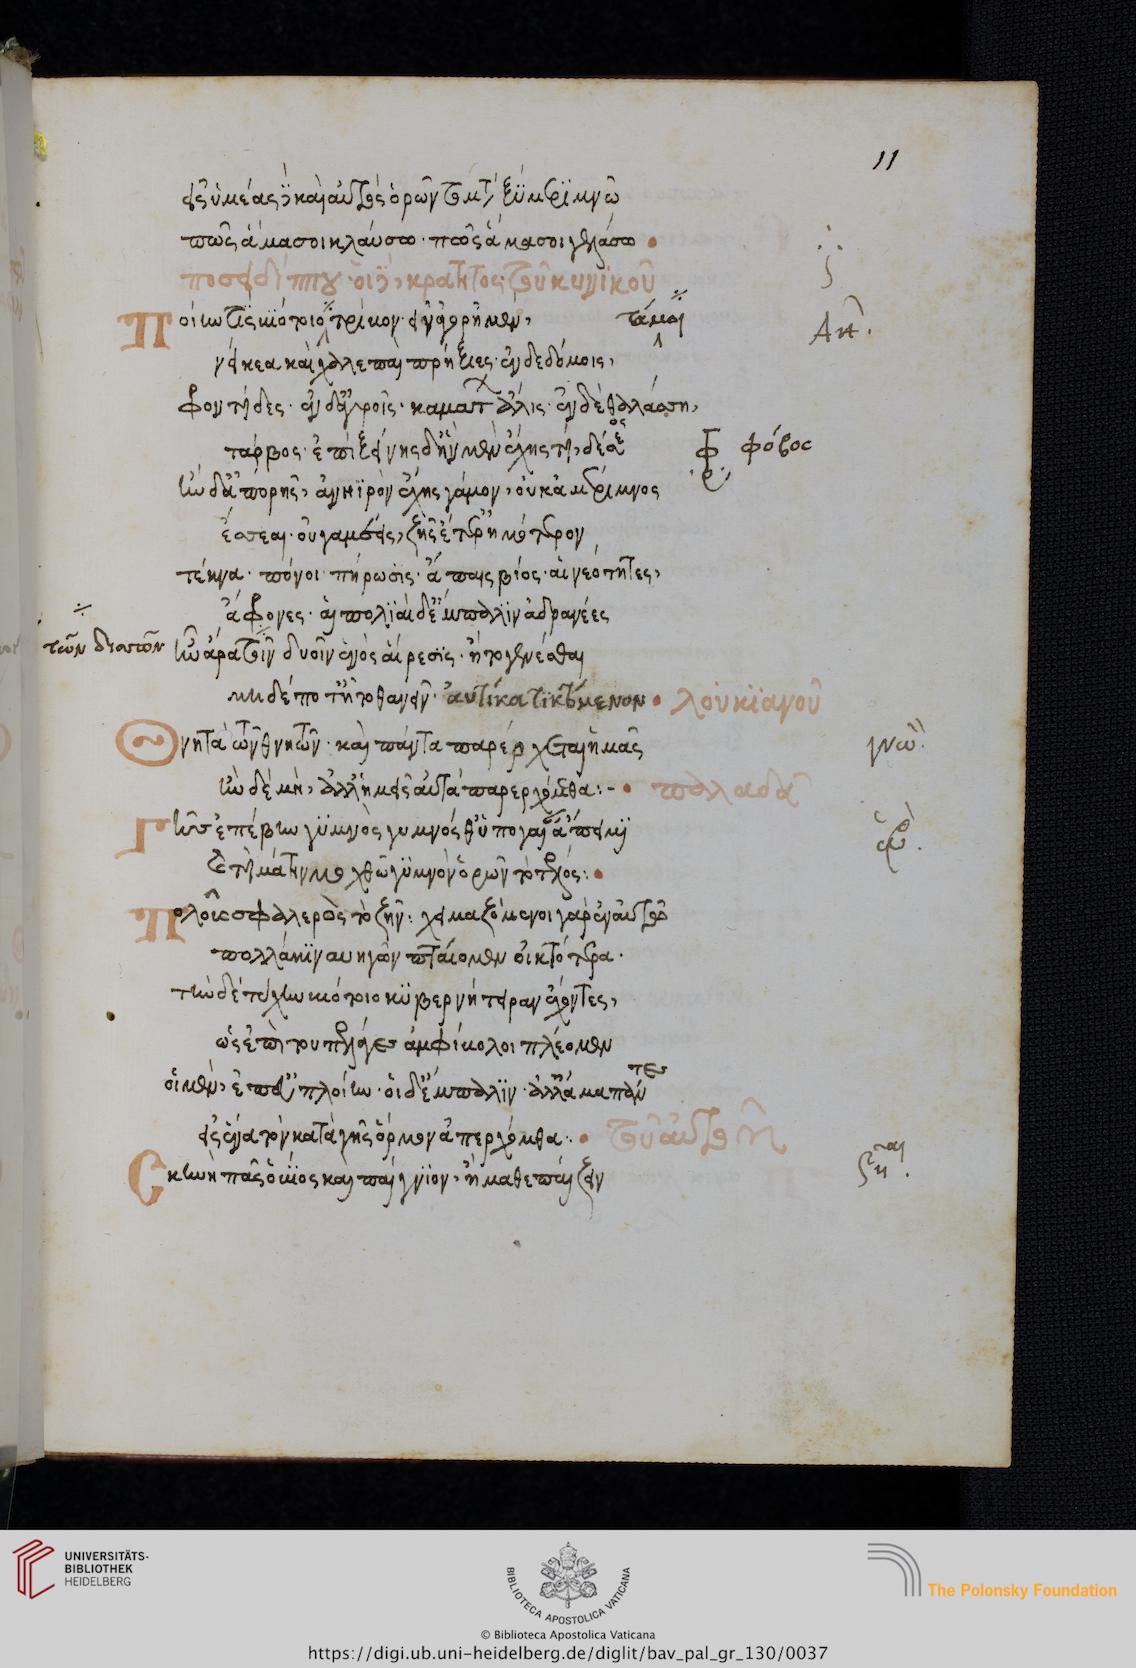 11
εἰς ὑμέας καὶ αὐτὸς ὁρῶν
πῶς ἅμα σοι κλαύσω· πῶς ἅμα σοι γελάσω
ποσειδίππου· οἱ δὲ, κράτητος· τοῦ κυνικοῦ
Ποίην τις βιότοιο τρίβον· μὲν,
νείκεα καὶ χαλεπαὶ πρήξιες· ἐν δὲ δόμοις,
Φροντίδες· ἐν δ' ἀγροῖς· καμάτων ἅλις· ἐν δὲ θαλάσση,
τάρβος· ἐπὶ ξείνης δ' ἢν μὲν ἔχης τι, δέος
φόβος
ἢν δ' ἀπορῆς, ἀνιηρόν ἔχης γάμον, οὐκ ἀμέριμνος
ἔσσεαι· οὐ γαμέεις, ζῆς ἔτ' ἐρημότερον
τέκνα· πόνοι· πήρωσις· ἄπαις βίος· αἱ νεότητες,
ἄφρονες· αἱ πολιαὶ δ' ἔμπαλιν ἀδρανέες
τῶν δισσῶν
ἦν ἄρα τοῖν δυοῖν ἑνὸς αἵρεσις· ἢ τὸ γενέσθαι
μηδέποτ' ἢ τὸ θανεῖν· αὐτίκα τικτόμενον λουκϊανοῦ
Θνητὰ τὰ τῶν θνητῶν· καὶ πάντα παρέρχεται ἡμᾶς
ἢν δὲ μὴ, ἀλλ' ἡμεῖς αὐτὰ παρερχόμεθα παλλαδᾶ
Γῆς ἐπέβην γυμνὸς γυμνός θ' ὑπὸ γαῖαν ἄπειμι
καὶ τί μάτην μοχθῶ γυμνὸν ὁρῶν τὸ τέλος
Πλοῦς σφαλερὸς τὸ ζῆν· χειμαζόμενοι γὰρ ἐν αὐτῷ
πολλάκι ναυηγῶν πταίομεν οἰκτρότερα·
τὴν δὲ τύχην βιότοιο κυβερνήτειραν ἔχοντες,
ὡς ἐπὶ τοῦ πελάγευς ἀμφίβολοι πλέομεν
οἱ μὲν, ἐπ' εὐπλοίην· οἱ δ' ἔμπαλιν· ἀλλ' ἅμα πάντες
εἰς ἕνα τὸν κατὰ γῆς ὅρμον ἀπερχόμεθα τοῦ αὐτοῦ
Σκηνὴ πᾶς ὁ βίος καὶ παίγνιον, ἢ μάθε παίζειν
UNIVERSITÄTS-
BIBLIOTHEK
HEIDELBERG
BIBLIOTECA APOSTOLICA VATICANA
The Polonsky Foundation
© Biblioteca Apostolica Vaticana
https://digi.ub.uni-heidelberg.de/diglit/bav_pal_gr_130/0037